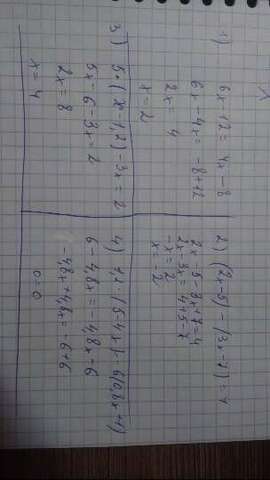 1) 6x - 12 = 4x - 8
6x - 4x = -8 + 12
2x = 4
x = 2
2) (2x - 5) - (3x - 7) = 4
2x - 5 - 3x + 7 = 4
2x - 3x = 4 + 5 - 7
-x = 2
x = -2
3) 5 · (x - 1,2) - 3x = 2
5x - 6 - 3x = 2
2x = 8
x = 4
4) 1,2 · (5 - 4x) = -6(0,8x - 1)
6 - 4,8x = -4,8x + 6
-4,8x + 4,8x = -6 + 6
0 = 0